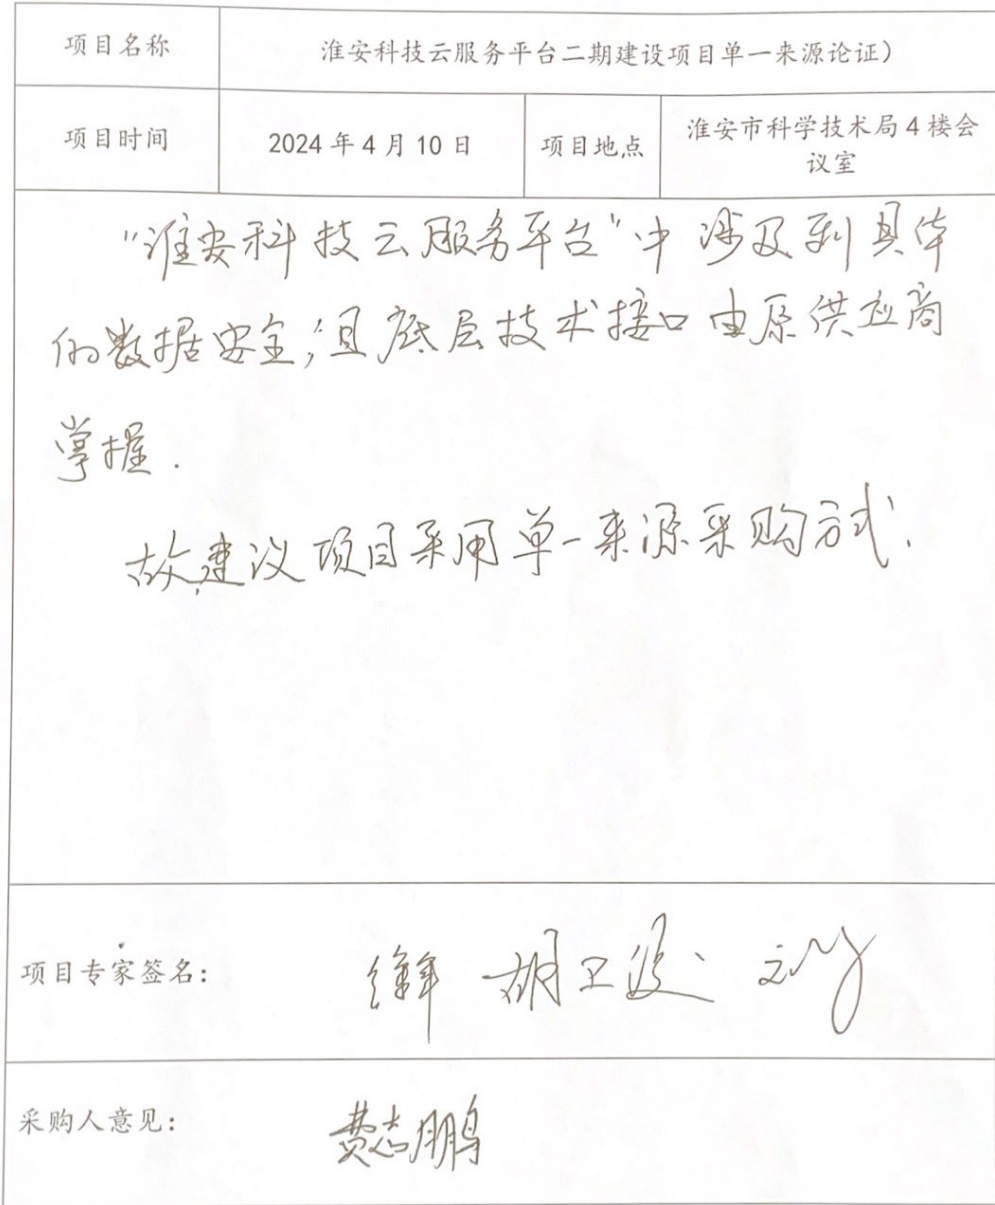 项目名称 淮安科技云服务平台二期建设项目单一来源论证）
项目时间 2024年4月10日 项目地点 淮安市科学技术局4楼会
议室
“淮安科技云服务平台”中涉及到具体
的数据安全，且底层技术接口由原供应商
掌握.
故建议项目采用单一来源采购方式.
项目专家签名： 胡卫波
采购人意见： 费志鹏